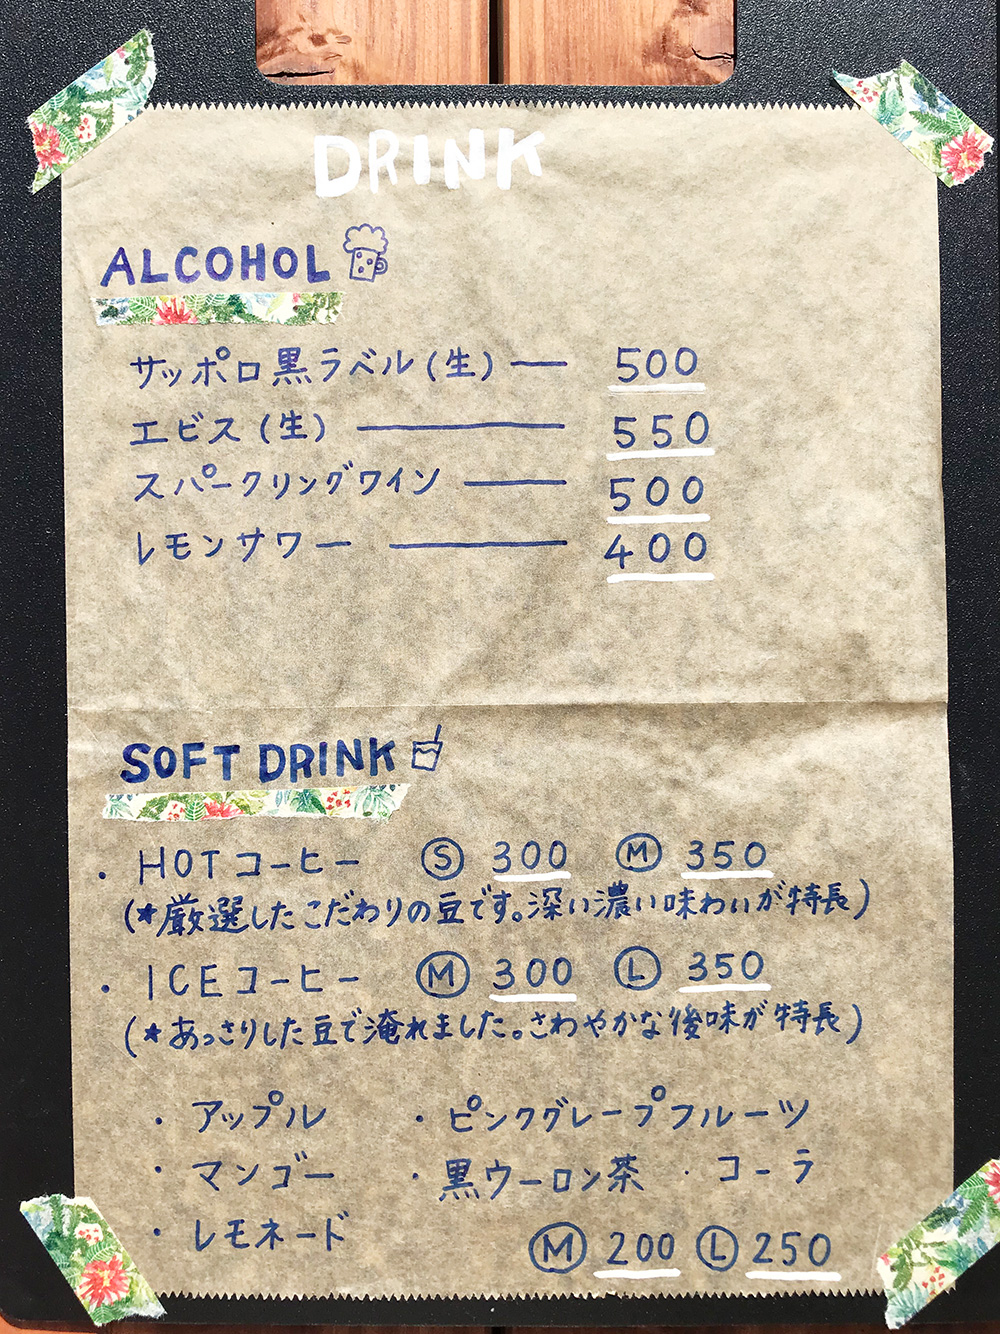 DRINK
ALCOHOL
サッポロ黒ラベル(生) — 500
エビス(生) — 550
スパークリングワイン — 500
レモンサワー — 400
SOFT DRINK
・HOTコーヒー Ⓢ 300 Ⓜ 350
(*厳選したこだわりの豆です。深い濃い味わいが特長)
・ICEコーヒー Ⓜ 300 Ⓛ 350
(*あっさりした豆で淹れました。さわやかな後味が特長)
・アップル ・ピンクグレープフルーツ
・マンゴー ・黒ウーロン茶 ・コーラ
・レモネード Ⓜ 200 Ⓛ 250